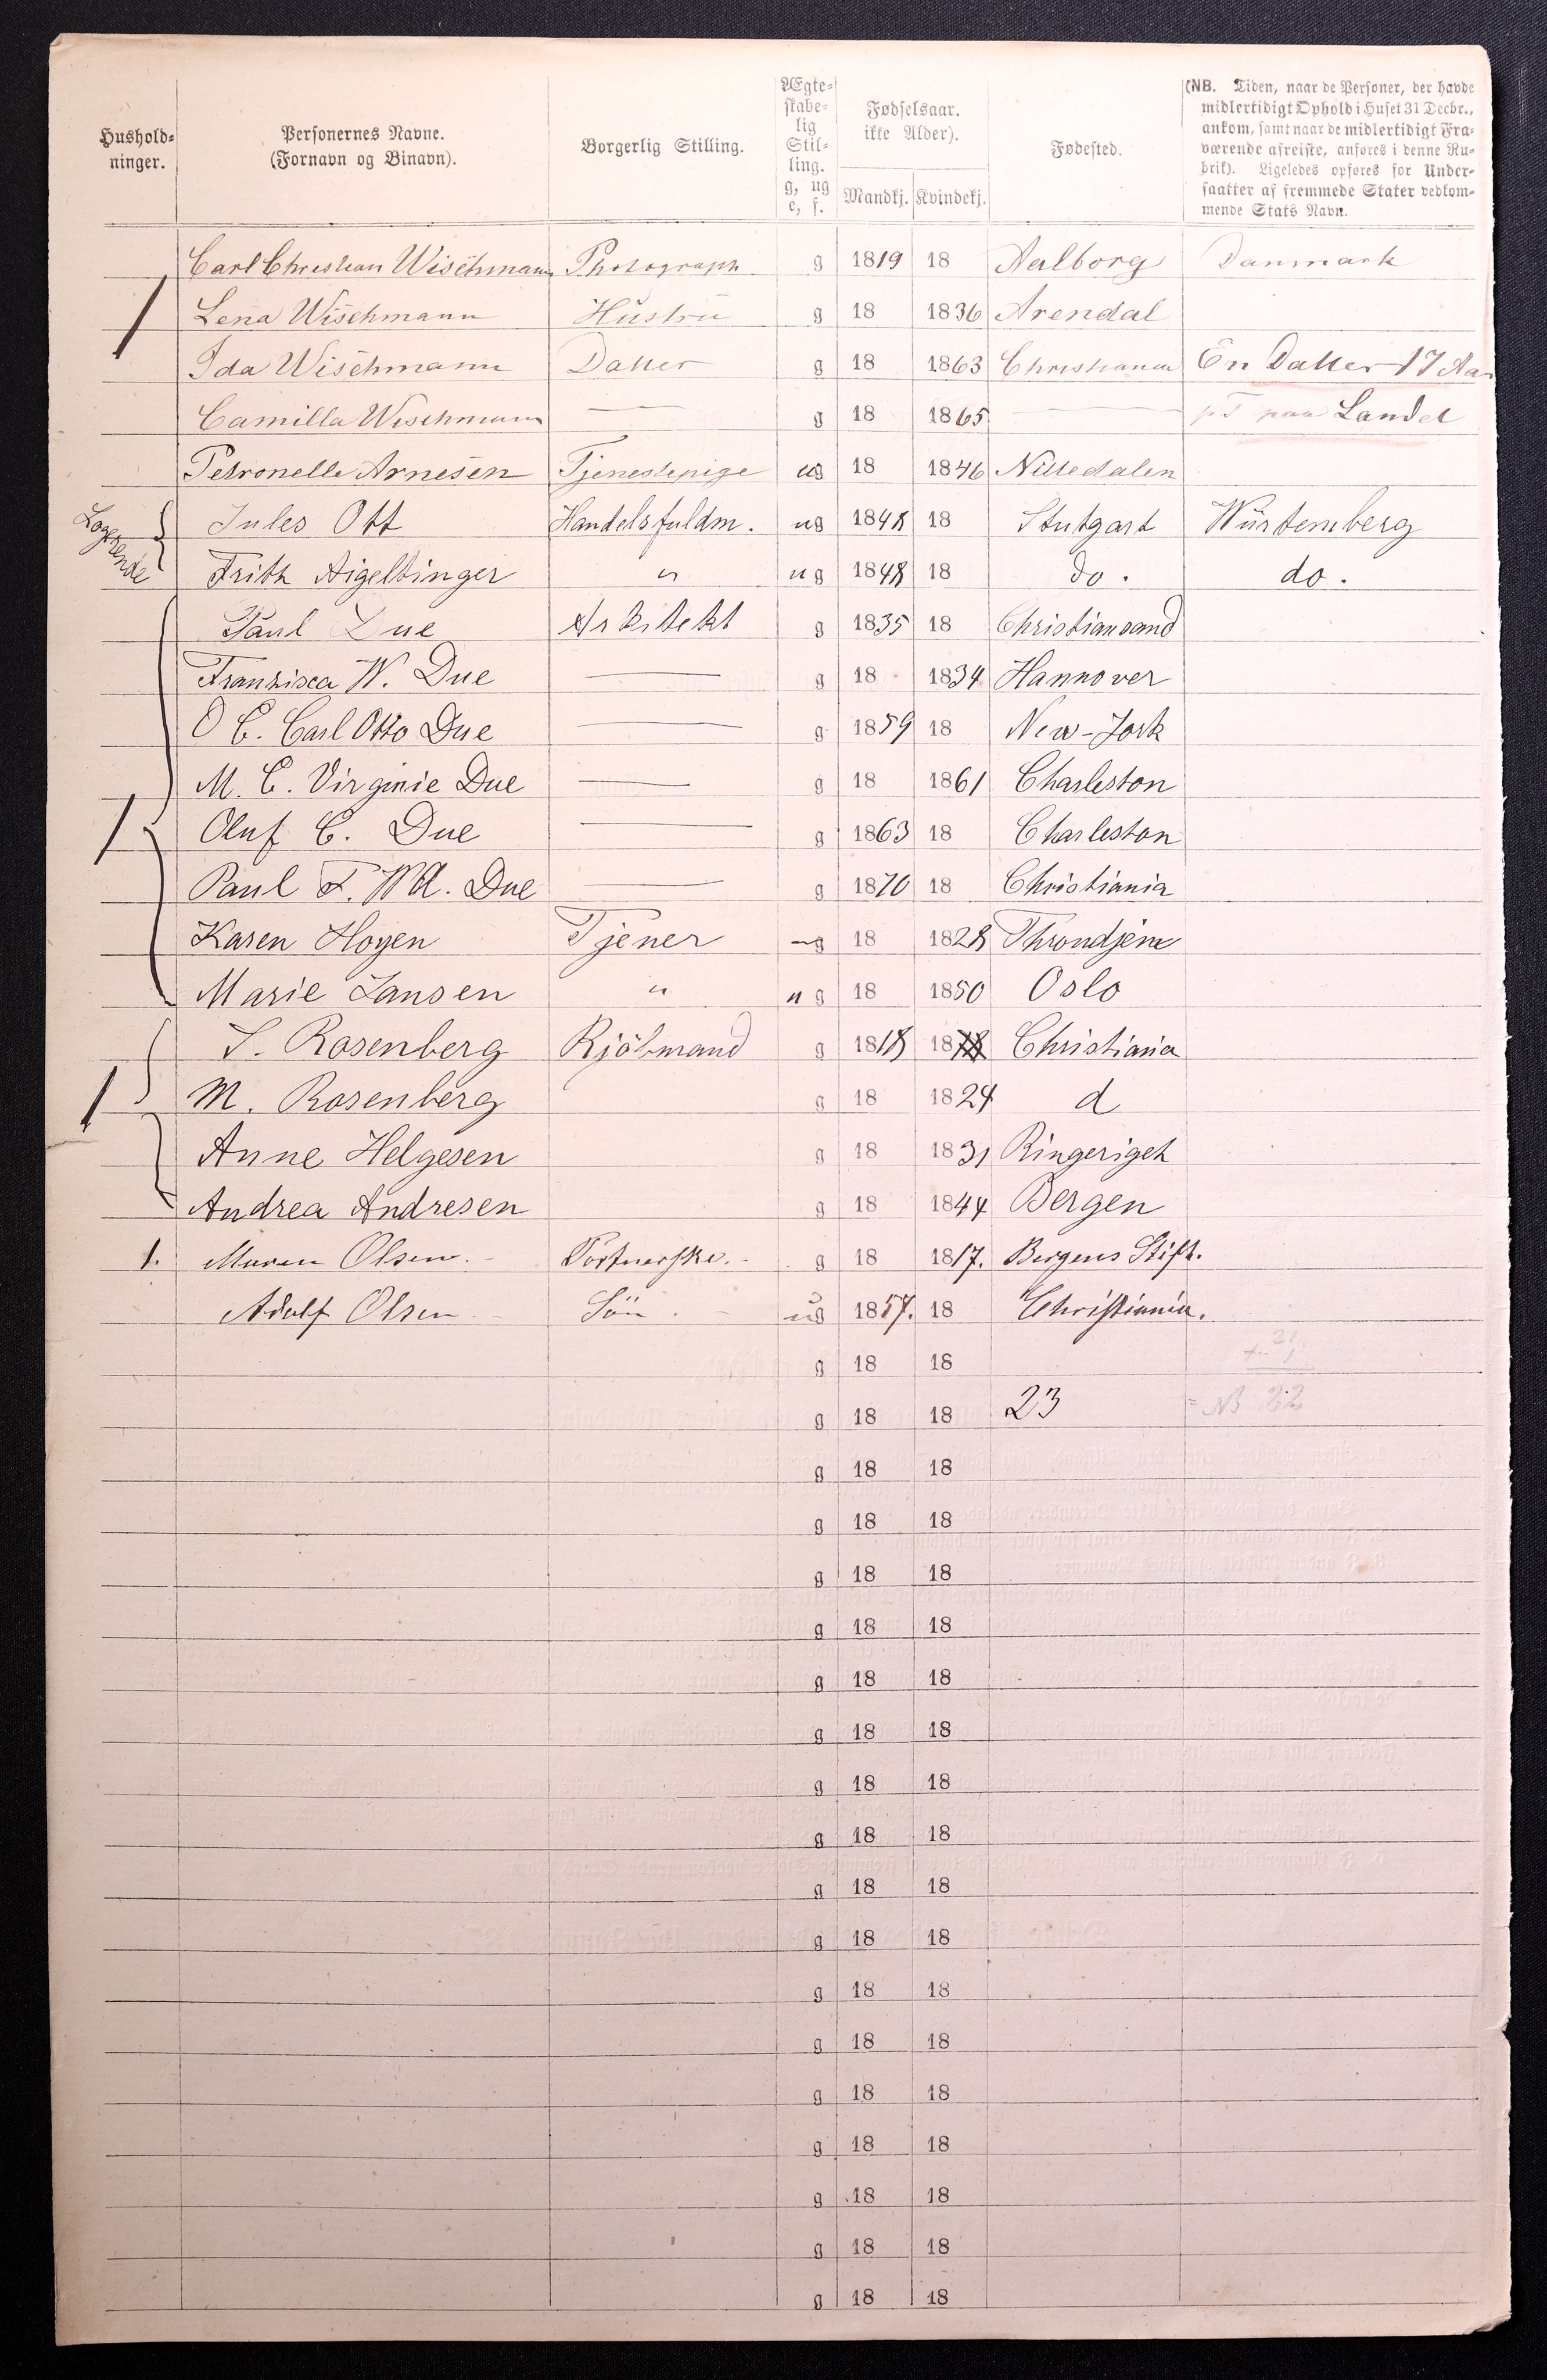 Hushold-
ninger.
Personernes Navne.
(Fornavn og Binavn).
Borgerlig Stilling.
Ægte-
skabe-
lig
Stil-
ling.
g, ug
e, f.
Fødselsaar.
ikke Alder).
Mandkj. Kvindekj.
Fødested.
(NB. Tiden, naar de Personer, der havde
midlertidigt Ophold i Huset 31 Decbr.,
ankom, samt naar de midlertidigt Fra-
værende afreiste, anføres i denne Ru-
brik). Ligeledes opføres for Under-
saatter af fremmede Stater vedkom-
mende Stats Navn.
Carl Christian Wischmann Photograph g 1819 18 Aalborg Danmark
Lena Wischmann Hustru g 18 1836 Arendal
Ida Wischmann Datter g 18 1863 Christiania En Datter 17 Aar
Camilla Wischmann — g 18 1865 — pT paa Landet
Petronelle Arnesen Tjenestepige ug 18 1846 Nittedalen
Logerende
Jules Ott Handelsfuldm. ug 1848 18 Stutgart Würtemberg
Frith Aigeltinger " ug 1848 18 do. do.
Paul Due Arkitekt g 1835 18 Christiansand
Franzisca W. Due — g 18 1834 Hannover
O C. Carl Otto Due — g 1859 18 New-York
M. C. Virginie Due — g 18 1861 Charleston
Oluf C. Due — g 1863 18 Charleston
Paul F. Wd. Due — g 1870 18 Christiania
Karen Hoyen Tjener ug 18 1828 Throndjem
Marie Jansen " ug 18 1850 Oslo
S. Rosenberg Kjöbmand g 1818 18 Christiania
M. Rosenberg g 18 1824 d
Anne Helgesen g 18 1831 Ringeriget
Andrea Andresen g 18 1844 Bergen
1. Maren Olsen. Portnerske. g 18 1817. Bergens Stift.
Adolf Olsen Sön. ug 1857. 18 Christiania.
g 18 18 21
+ 1
g 18 18 23 = NB 22
g 18 18
g 18 18
g 18 18
g 18 18
g 18 18
g 18 18
g 18 18
g 18 18
g 18 18
g 18 18
g 18 18
g 18 18
g 18 18
g 18 18
g 18 18
g 18 18
g 18 18